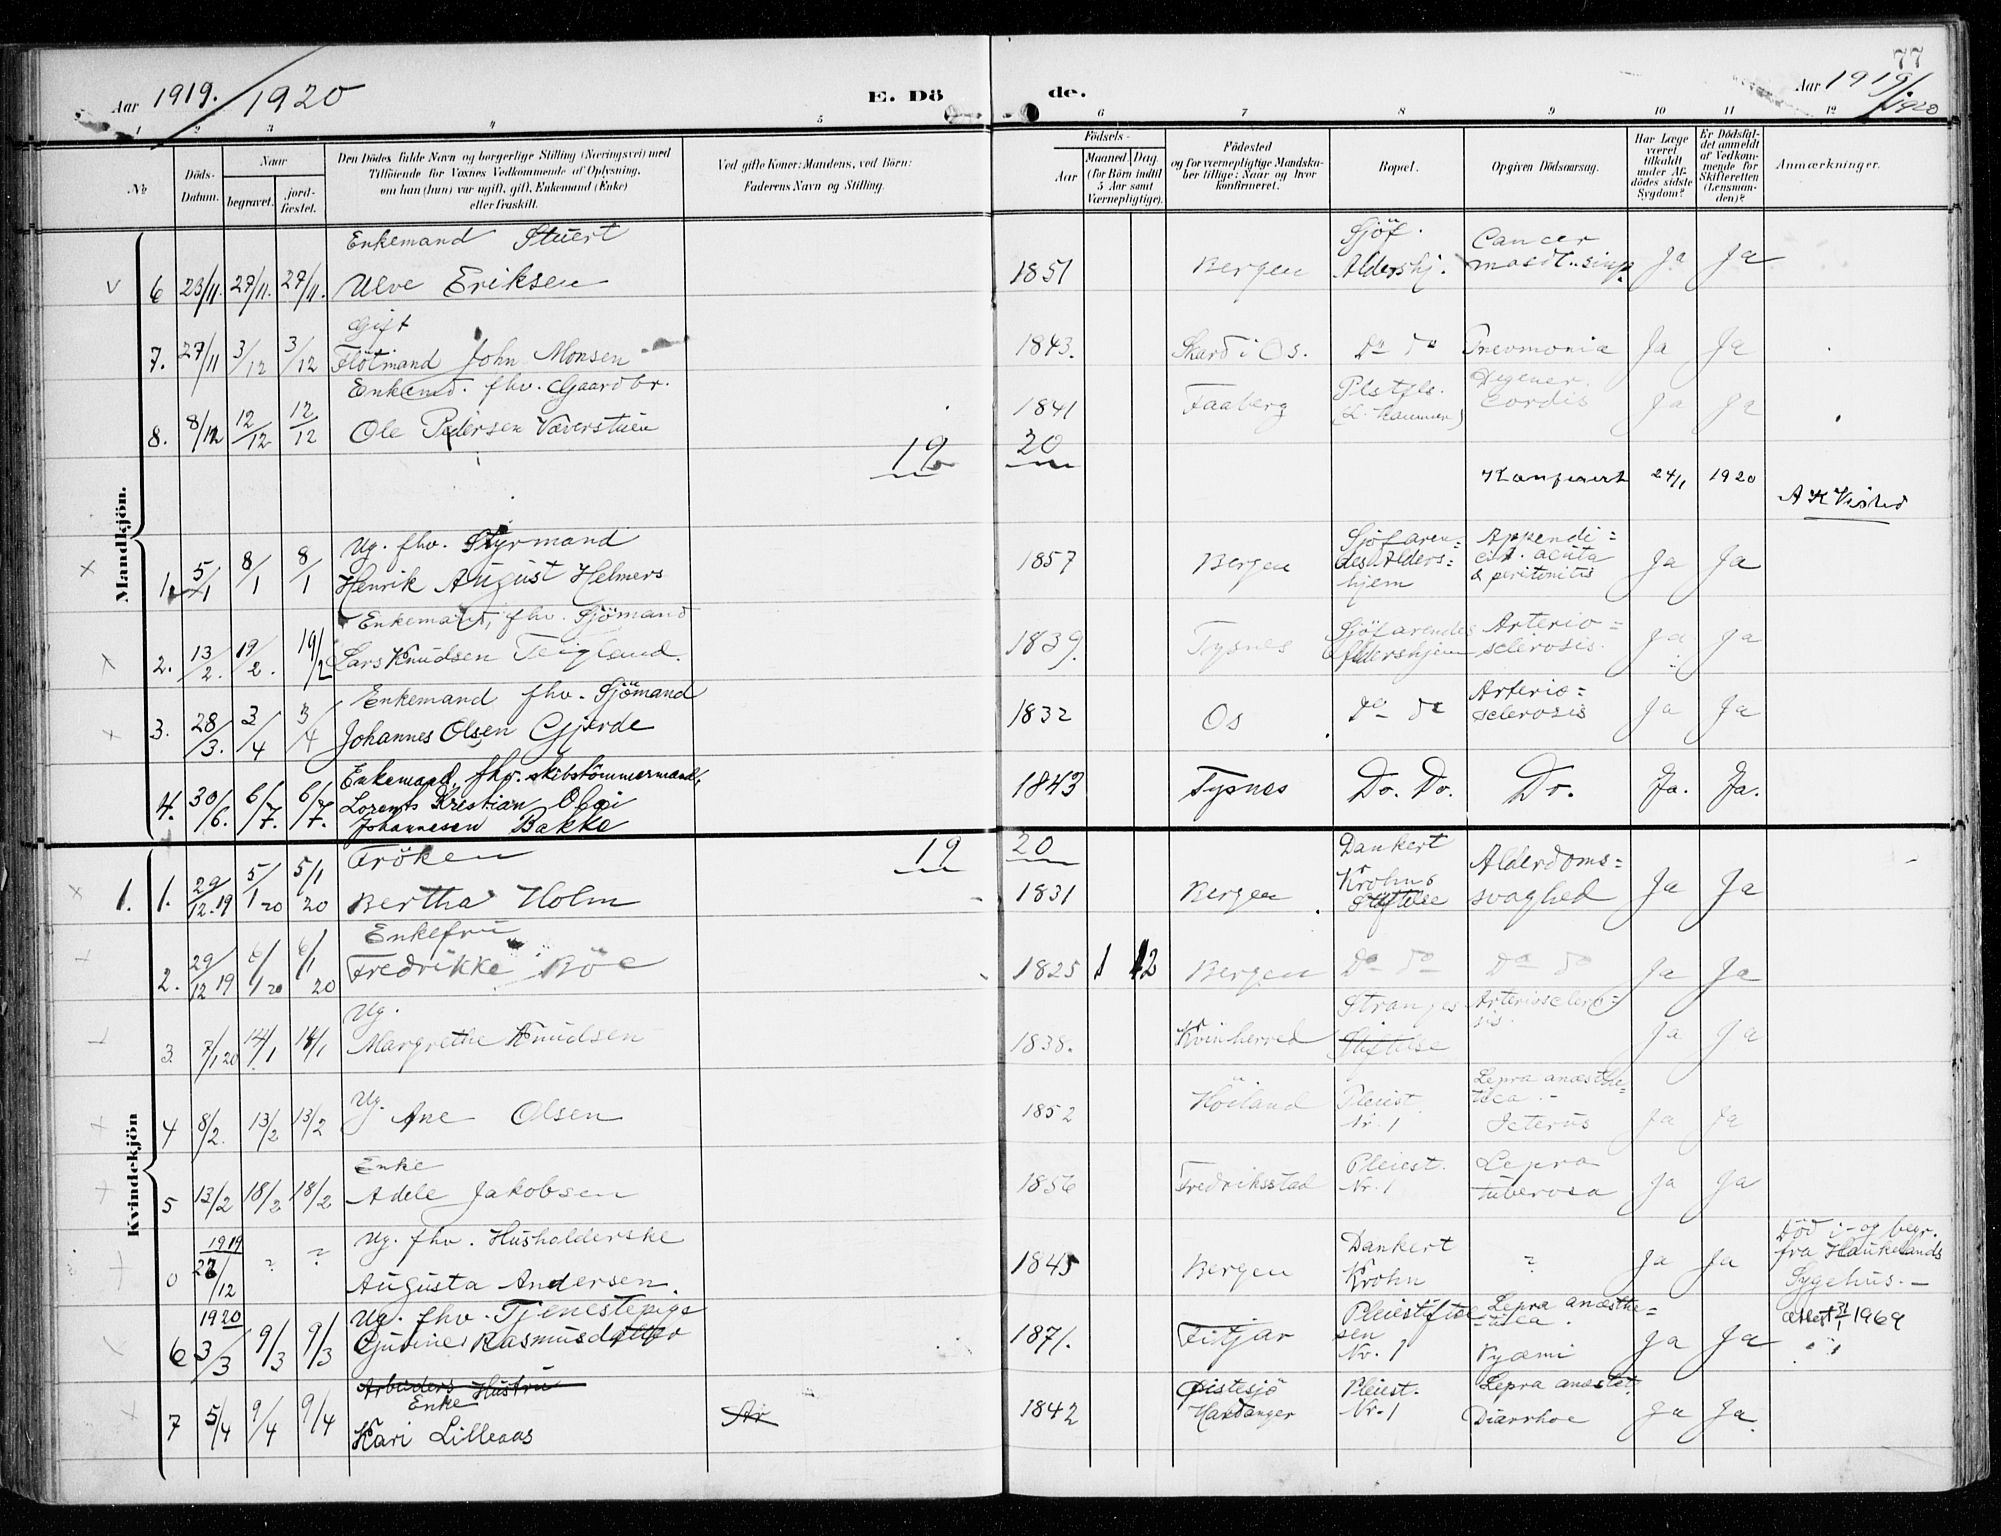 77
Aar 1919. / 1920 E. Dö de. Aar 1919/1920
1 2 3 4 5 6 7 8 9 10 11 12
No
Døds-Datum.
Naar
begravet.
jord-fæstet.
Den Dödes fulde Navn og borgerlige Stilling (Næringsvei) med
Tilföiende for Voxnes Vedkommende af Oplysning,
om han (hun) var ugift, gift, Enkemand (Enke)
eller fraskilt.
Ved gifte Koner: Mandens, ved Börn:
Faderens Navn og Stilling.
Födsels-
Aar
Maaned. Dag.
(for Börn indtil
5 Aar samt
Værnepligtige).
Födested
og for værnepligtige Mandska-
ber tillige: Naar og hvor
konfirmeret.
Bopæl.
Opgiven Dödsaarsag.
Har Læge
været
tilkaldt
under Af-
dödes sidste
Sygdom?
Er Dödsfal-
det anmeldt
af Vedkom-
mende for
Skifteretten
(Lensman-
den)?
Anmærkninger.
Mandkjön.
Enkemand Stuert Sjöf. Cancer
v 6 23/11 27/11. 27/11. Ulve Eriksen 1851 Bergen Aldershj. Ja Ja
Gift
7. 27/11 3/12 3/12 Flötmand John Monsen 1843. Skard i Os. Do do Pneumonia Ja Ja
Enkemd. fhv. Gaardbr. Degener.
8. 8/12 12/12 12/12 Ole Pedersen Væverstuen 1841 Faaberg cordis Ja Ja
19 20
Konferert 24/1 1920
Ug. fhv. Styrmand Sjöfaren= Appendi=
x 1. 5/1 8/1 8/1 Henrik August Helmers 1857 Bergen des Alders=hjem cit. acuta & peritonitis Ja Ja
Enkemand, fhv. Sjömand
x 2. 13/2. 19/2. 19/2 Lars Knudsen Teigland. 1839. Tysnes Sjöfarendes Aldershjem Arterio=sclerosis. Ja Ja
Enkemand fhv. Sjömand
x 3. 28/3. 3/4 3/4 Johannes Olsen Gjerde 1832 Os Do do Arterio=sclerosis Ja Ja
Enkemand, fhv. skibstömmermand,
4. 30/6. 6/7. 6/7. Lorents Kristian Olai 1843 Tysnes Do. Do. Do. Ja. Ja.
Johannesen Bakke
Kvindekjön
19 20
Fröken Dankert
x 1. 1. 29/12.19 5/1 20 5/1 20 Bertha Holm 1831 Bergen Krohns Stiftelse Alderdoms=svaghed Ja Ja
Enkefru
2. 29/12 19 6/1 20 6/1 20 Fredrikke Böe 1825 1 12 Bergen Do do Do do Ja Ja
Ug.
3. 7/1 20 14/1 14/1 Margrethe Knudsen 1838. Kvinherred Stranges Stiftelse Arteriosclero=sis. Ja Ja
Ug.
4 8/2. 13/2 13/2 Ane Olsen 1852 Höiland Pleiest. Nr. 1 Lepra anæsthe=tica.- Icterus Ja Ja
Enke
5 13/2 18/2 18/2 Adele Jakobsen 1856 Fredriksstad Pleiest. Nr. 1 Lepra tuberosa Ja Ja
1919 Ug. fhv. Husholderske
0 28/12 ? ? Augusta Andersen. 1845 Bergen Dankert Krohn ? Ja Ja Död i - og begr. fra Haukelands Sygehus.-
1920 Ug. fhv. Tjenestepige
6 3/3 9/3 9/3 Gurine Rasmusdatter 1871. Fitjar Pleiestiftelsen Nr. 1 Lepra anæsthe=tica. Pyæmi Ja Ja attest 31/1 1969
Arbeiders Hustru
Enke
7 5/4 9/4 9/4 Kari Lilleaas 1842 Øistesjö Hardanger Pleiest. Nr. 1 Lepra anæstet. Diarrhoe Ja Ja.